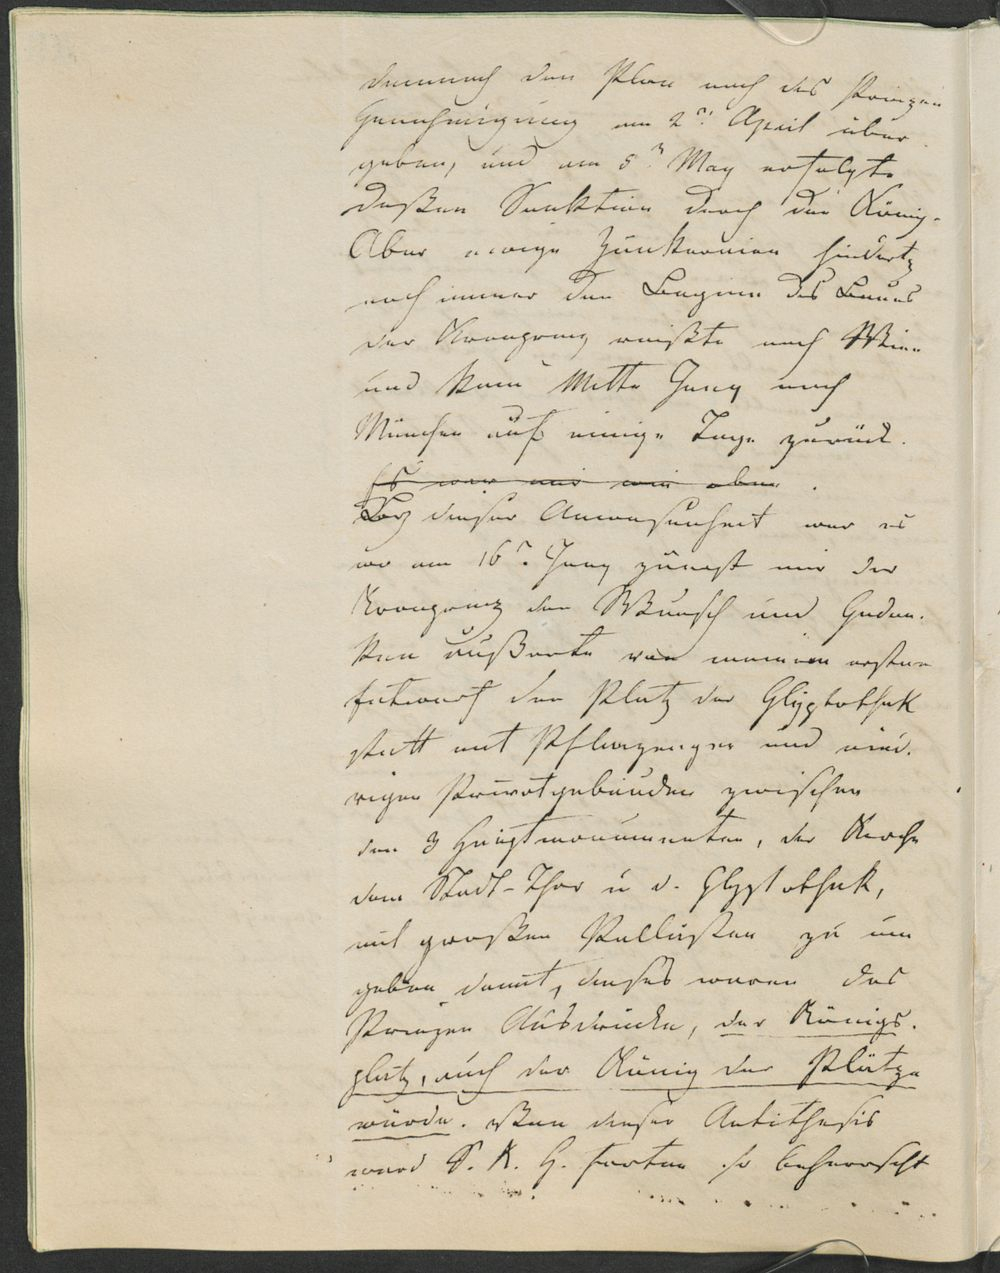 demnach den Plan nach des Prinzen
Genehmigung am 2n. April über
geben, und am 5n May erfolgte
deßen Sanktion durch den König.
Aber einige Zänkereien hinderten
noch immer den Beginn des Baues
der Kronprinz reißte nach Wien
und kam Mitte Juny nach
München auf einige Tage zurück.
Es war mir wie oben.
Bey dieser Anwesenheit war es
wo am 16n. Juny zuerst mir der
Kronprinz den Wunsch und Gedan-
ken äußerte von meinem ersten
Entwurf den Platz der Glyptothek
statt mit Pflanzungen und nied-
rigen Privatgebäuden zwischen
den 3 Hauptmonumenten, der Kirche
dem Stadt-Thor u d. Glyptothek,
mit großen Pallästen zu um
geben damit, dieses waren des
Prinzen Ausdrücke, der Königs-
platz, auch der König der Plätze
würde. Von dieser Antithesis
ward S. K. H. fortan so beherrscht